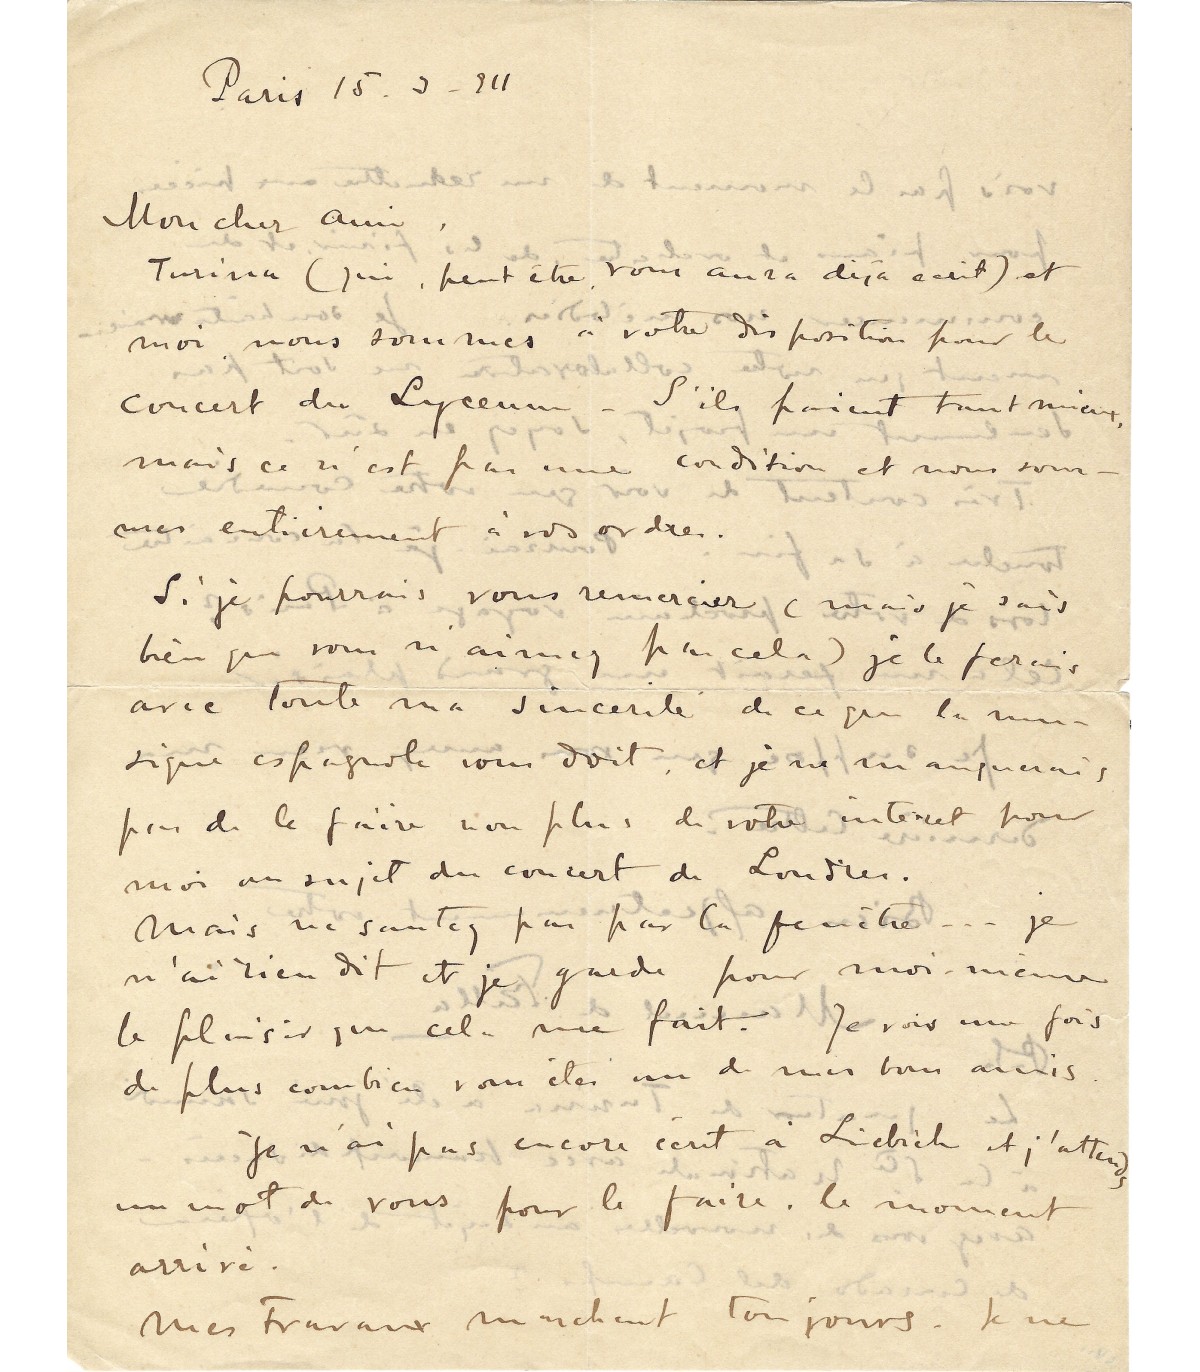 Paris 15. 3 - 911
Mon cher ami,
Turina (qui, peut être, vous aura dejà ecrit) et
moi, nous sommes à votre disposition pour le
concert du Lyceum - S'ils paient tant mieux,
mais ce n'est pas une condition et nous som-
mes entièrement à vos ordres.
Si je pourrais vous remercier (mais je sais
bien que vous n'aimez pas cela) je le ferais
avec toute ma sincerité de ce que la mu-
sique espagnole vous doit, et je ne manquerais
pas de le faire non plus de votre intéret pour
moi au sujet du concert de Londres.
Mais ne sautez pas par la fenêtre --- je
n'ai rien dit et je garde pour moi-même
le plaisir que cela me fait. Je vois une fois
de plus combien vous êtes un de mes bons amis.
Je n'ai pas encore écrit à Liebich et j'attends
un mot de vous pour le faire, le moment
arrivé.
Mes travaux marchent toujours. Je ne